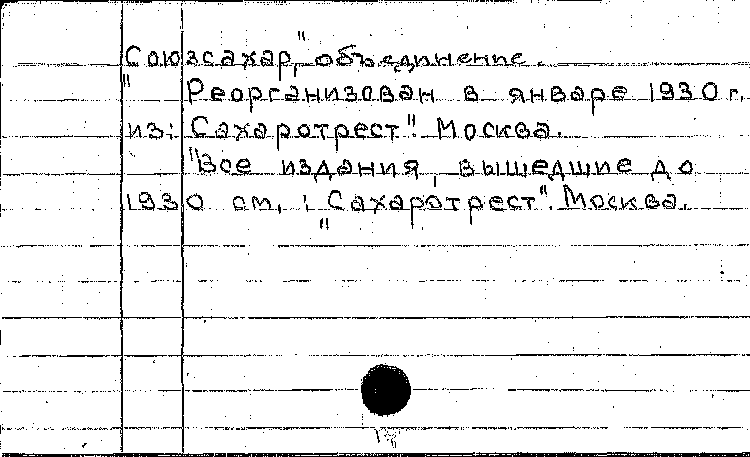 Союзсахар," объединение.
" Реорганизован в январе 1930 г.
из: Сахаротрест". Москва.
"Все издания, вышедшие до
1930 см. : "Сахаротрест". Москва.